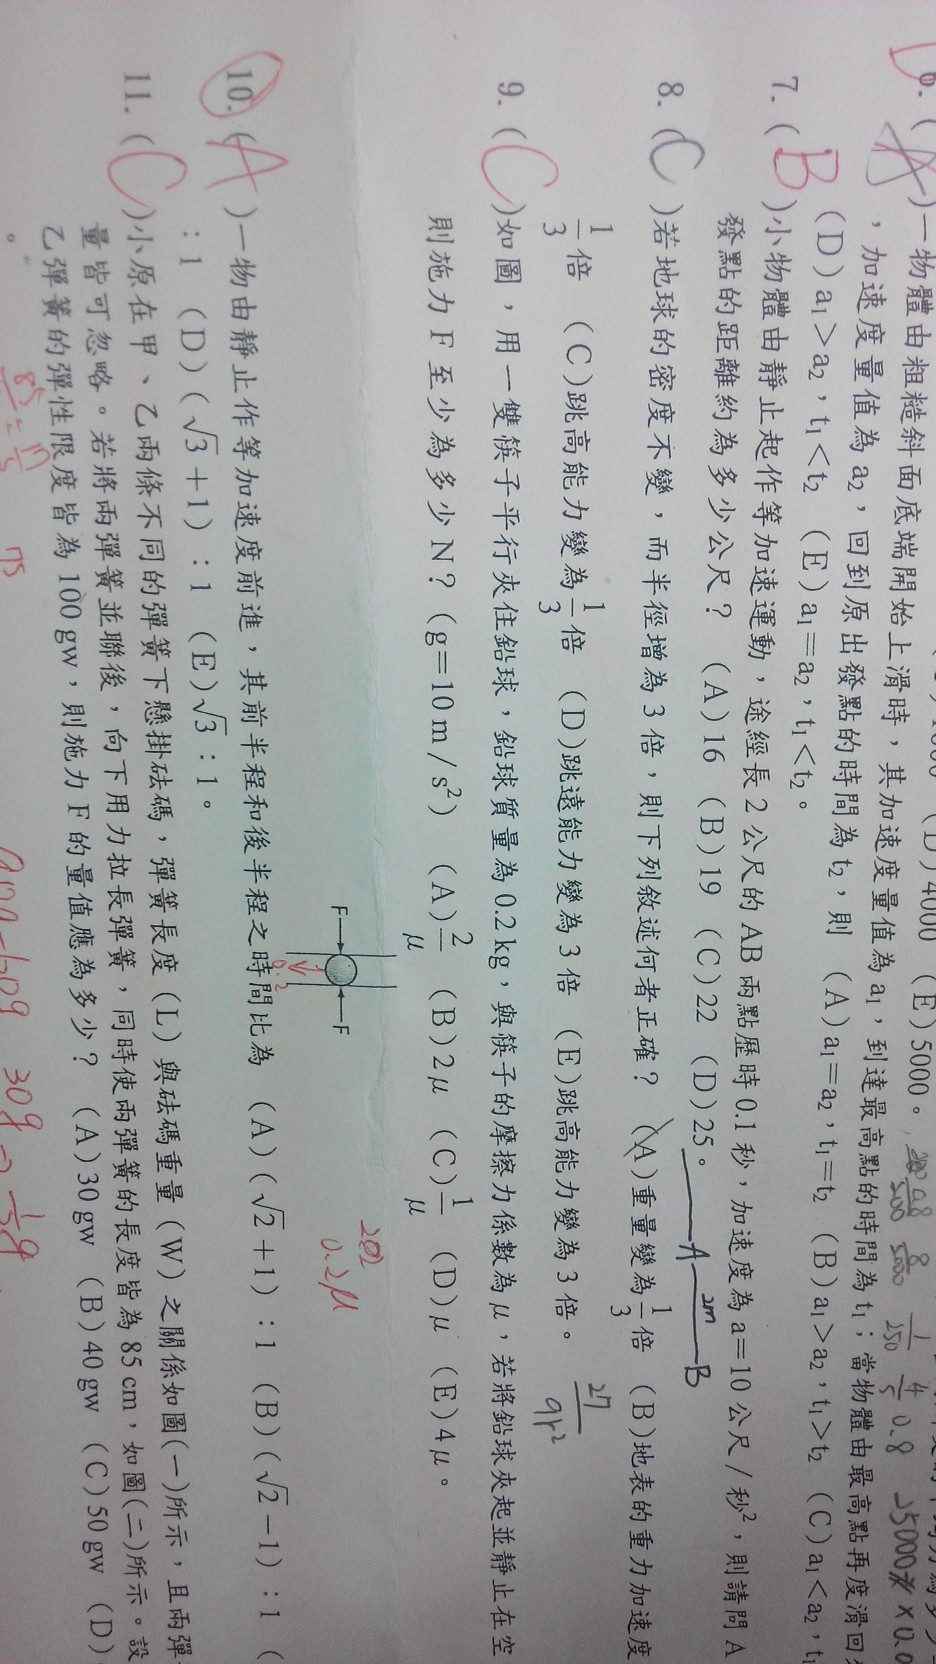 (D)4000 (E)5000。
6. (A)一物體由粗糙斜面底端開始上滑時，其加速度量值為a₁，到達最高點的時間為t₁；當物體由最高點再度滑回
，加速度量值為a₂，回到原出發點的時間為t₂，則 (A)a₁=a₂，t₁=t₂ (B)a₁>a₂，t₁>t₂ (C)a₁<a₂，t₁
(D)a₁>a₂，t₁<t₂ (E)a₁=a₂，t₁<t₂。
7. (B)小物體由靜止起作等加速運動，途經長2公尺的AB兩點歷時0.1秒，加速度為a=10公尺/秒²，則請問A
發點的距離約為多少公尺？ (A)16 (B)19 (C)22 (D)25。
A 2m B
8. (C)若地球的密度不變，而半徑增為3倍，則下列敘述何者正確？ (A)重量變為1/3倍 (B)地表的重力加速度
1/3倍 (C)跳高能力變為1/3倍 (D)跳遠能力變為3倍 (E)跳高能力變為3倍。
27/9r²
9. (C)如圖，用一雙筷子平行夾住鉛球，鉛球質量為0.2kg，與筷子的摩擦力係數為μ，若將鉛球夾起並靜止在空
則施力F至少為多少N？(g=10m/s²) (A)2/μ (B)2μ (C)1/μ (D)μ (E)4μ。
F F
0.2μ
10. (A)一物由靜止作等加速度前進，其前半程和後半程之時間比為 (A)(√2+1)：1 (B)(√2−1)：1 (
：1 (D)(√3+1)：1 (E)√3：1。
11. (C)小原在甲、乙兩條不同的彈簧下懸掛砝碼，彈簧長度(L)與砝碼重量(W)之關係如圖(一)所示，且兩彈
量皆可忽略。若將兩彈簧並聯後，向下用力拉長彈簧，同時使兩彈簧的長度皆為85cm，如圖(二)所示。設
乙彈簧的彈性限度皆為100gw，則施力F的量值應為多少？ (A)30gw (B)40gw (C)50gw (D)
。
75